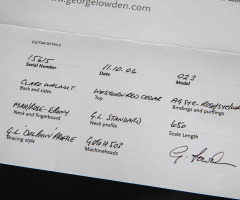 www.georgelowden.com
GUITAR DETAILS
15615 11.10.06 023
Serial Number Date Model
CLARO WALNUT WESTERN RED CEDAR
Back and sides Top Bindings and purflings
MAH/ROSE - EBONY G.L. STANDARD 650
Neck and fingerboard Neck profile Scale Length
G.L. "DOLPHIN" PROFILE GOTOH 503
Bracing style Machineheads